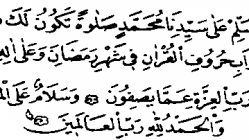 سَلِّمْ عَلَى سَيِّدِنَا مُحَمَّدٍ صَلٰوةً تَكُوْنُ لَكَ
بِحُرُوْفِ الْقُرْاٰنِ فِيْ شَهْرِ رَمَضَانَ وَعَلٰى اٰلِهِ
رَبِّ الْعِزَّةِ عَمَّا يَصِفُوْنَ وَسَلَامٌ عَلَى
وَالْحَمْدُ لِلّٰهِ رَبِّ الْعَالَمِيْنَ